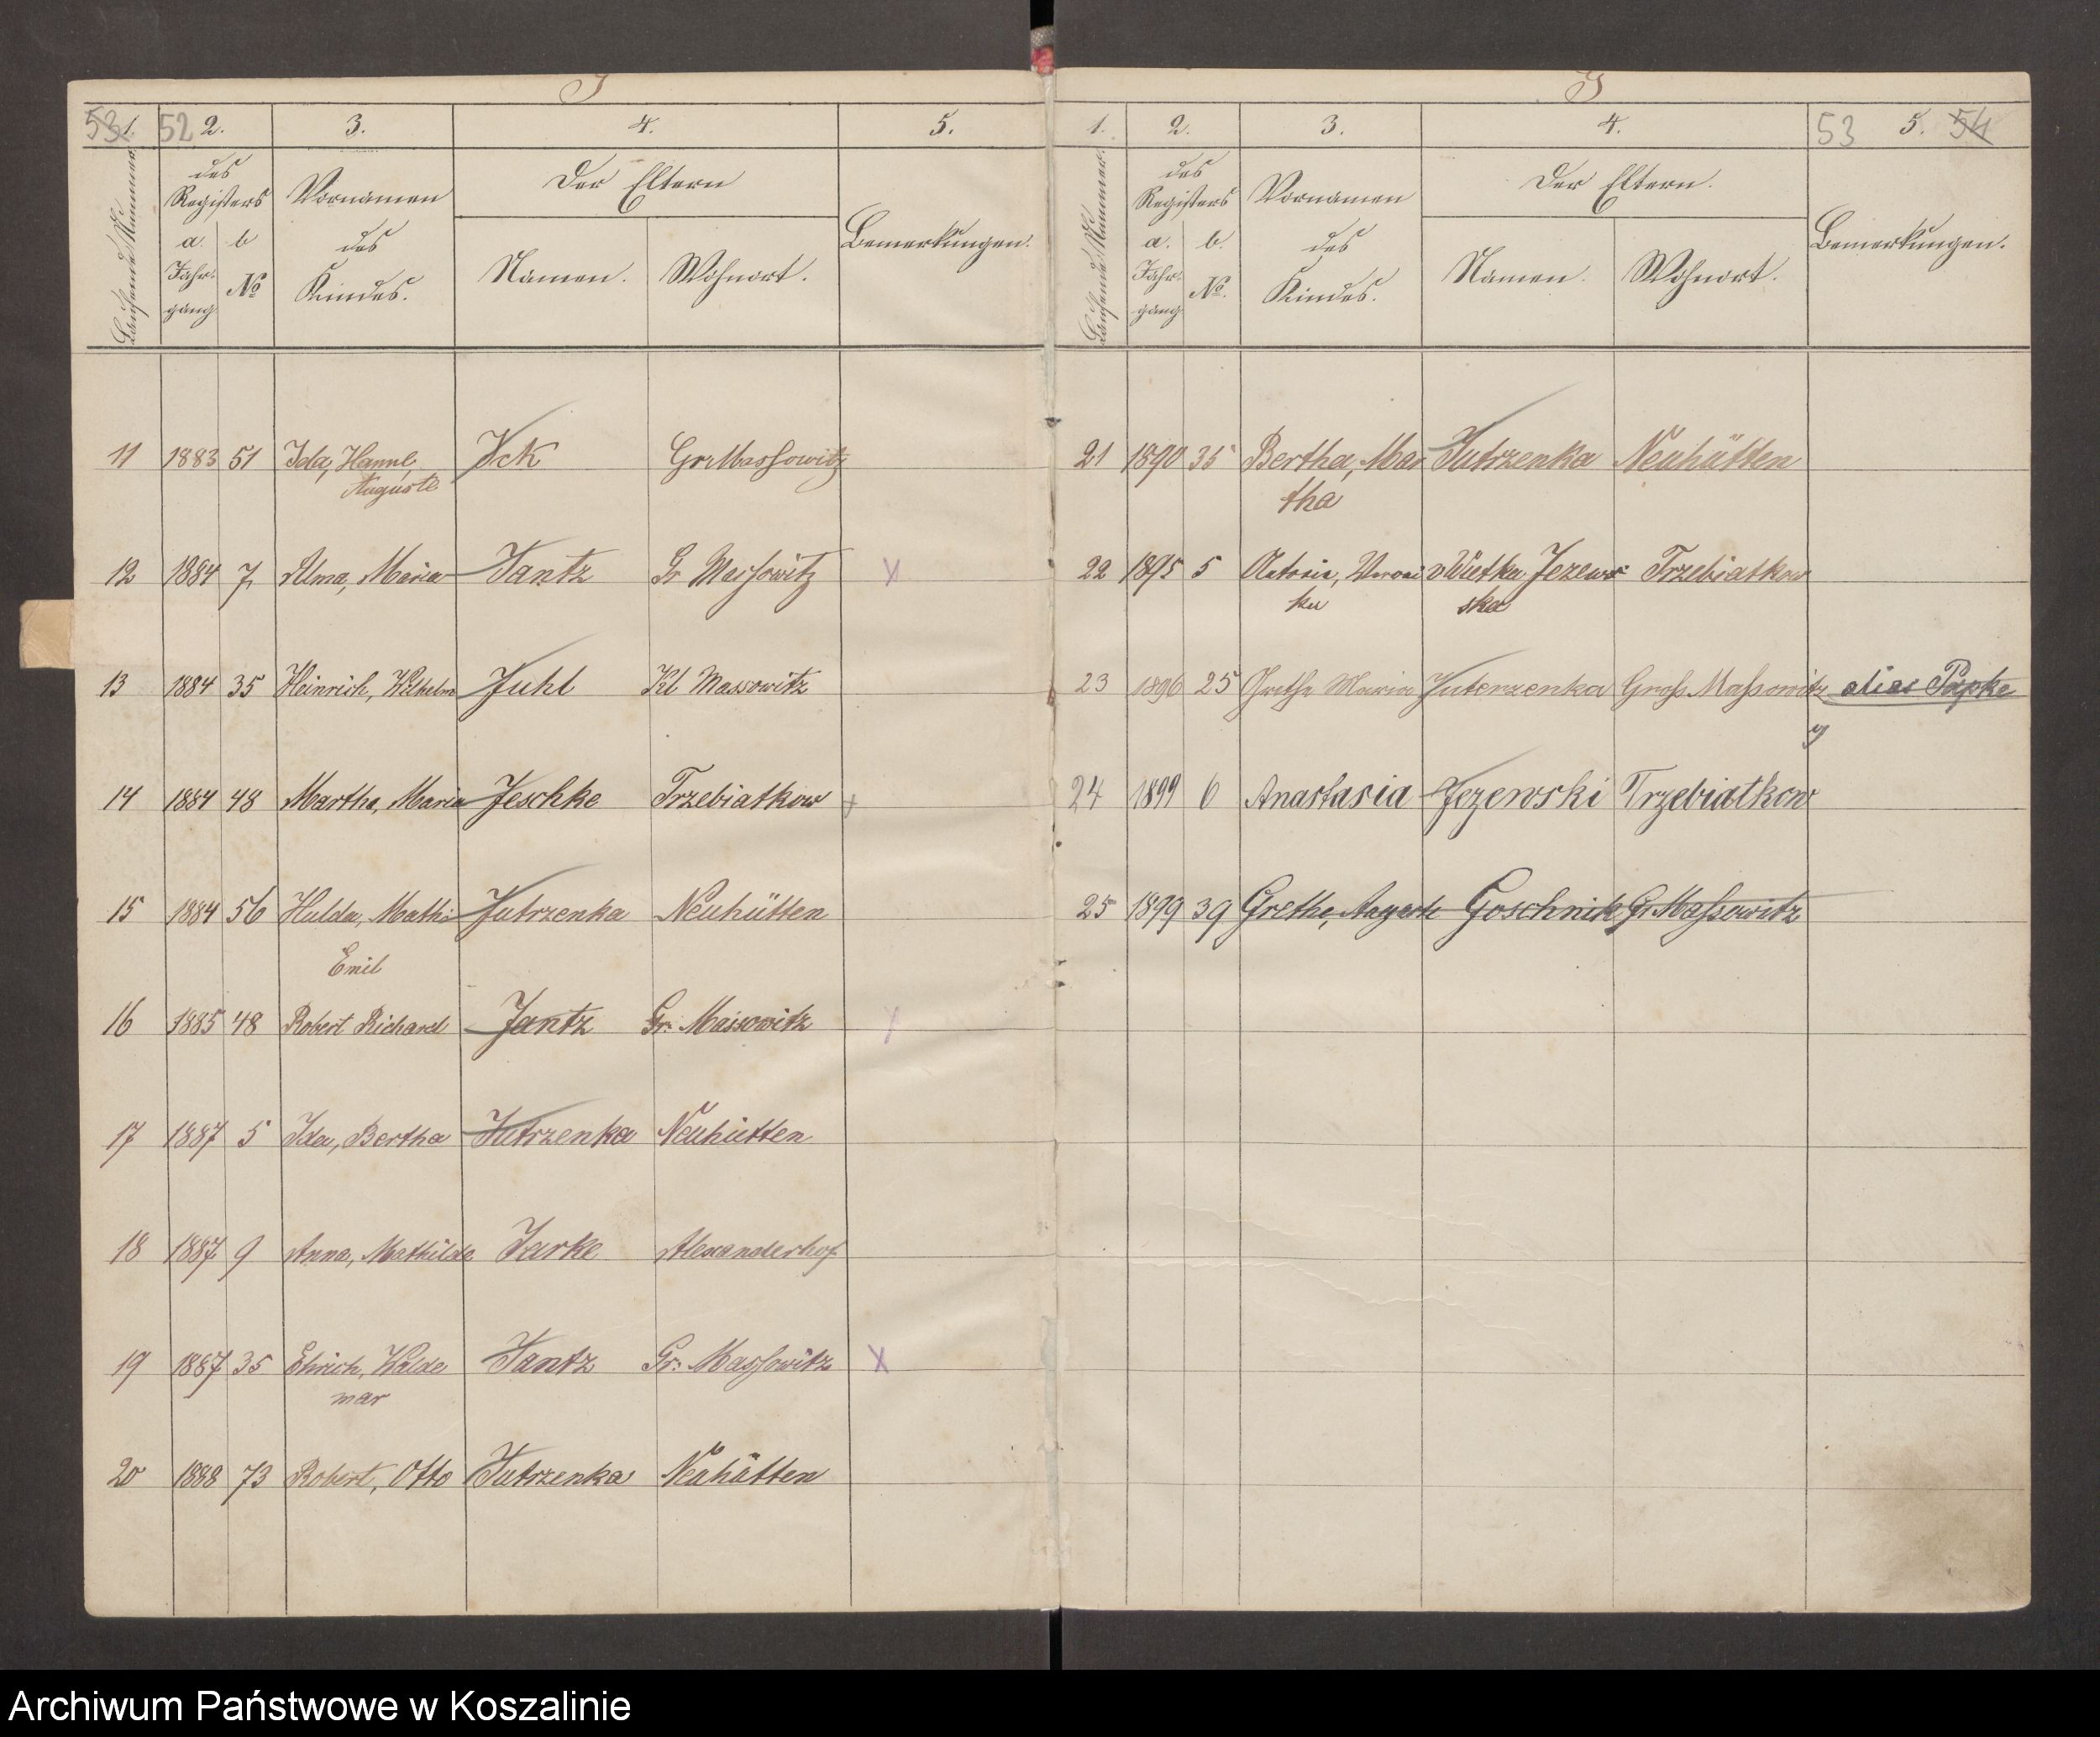 J
53 1. 52 2. 3. 4. 5.
Laufende Nummer.
des
Registers
a. b
Jahr-
gang
No
Vornamen
des
Kindes.
Der Eltern
Namen. Wohnort.
Bemerkungen.
11 1883 51 Ida, Hanne, Ick Gr. Massowitz
Auguste
12 1884 7 Alma, Maria Jantz Gr Massowitz X
13 1884 35 Heinrich, Wilhelm Juhl Kl Massowitz
14 1884 48 Martha, Maria Jeschke Trzebiatkow +
15 1884 56 Hulda, Jutrzenka Neuhütten
Emil
16 1885 48 Robert Richard Jantz Gr. Massowitz X
17 1887 5 Ida, Bertha Jutrzenka Neuhütten
18 1887 9 Anna, Mathilde Jarke Alexanderhof
19 1887 35 Ehrich, Walde Jantz Gr: Massowitz X
mar
20 1888 73 Robert, Otto Jutrzenka Neuhütten
J
1. 2. 3. 4. 53 5. 54
Laufende Nummer.
des
Registers
a. b.
Jahr-
gang
No.
Vornamen
des
Kindes.
Der Eltern.
Namen. Wohnort.
Bemerkungen.
21 1890 35 Bertha, Mar Jutrzenka Neuhütten
tha
22 1895 5 Jezews Trzebiatkow
ka ska
23 1896 25 Grethe Maria Jutenzenka Gross Massowitz alias Papke
24 1899 6 Anastasia Jezewski Trzebiatkow
25 1899 39 Grethe, Goschnik Gr. Massowitz
Archiwum Państwowe w Koszalinie